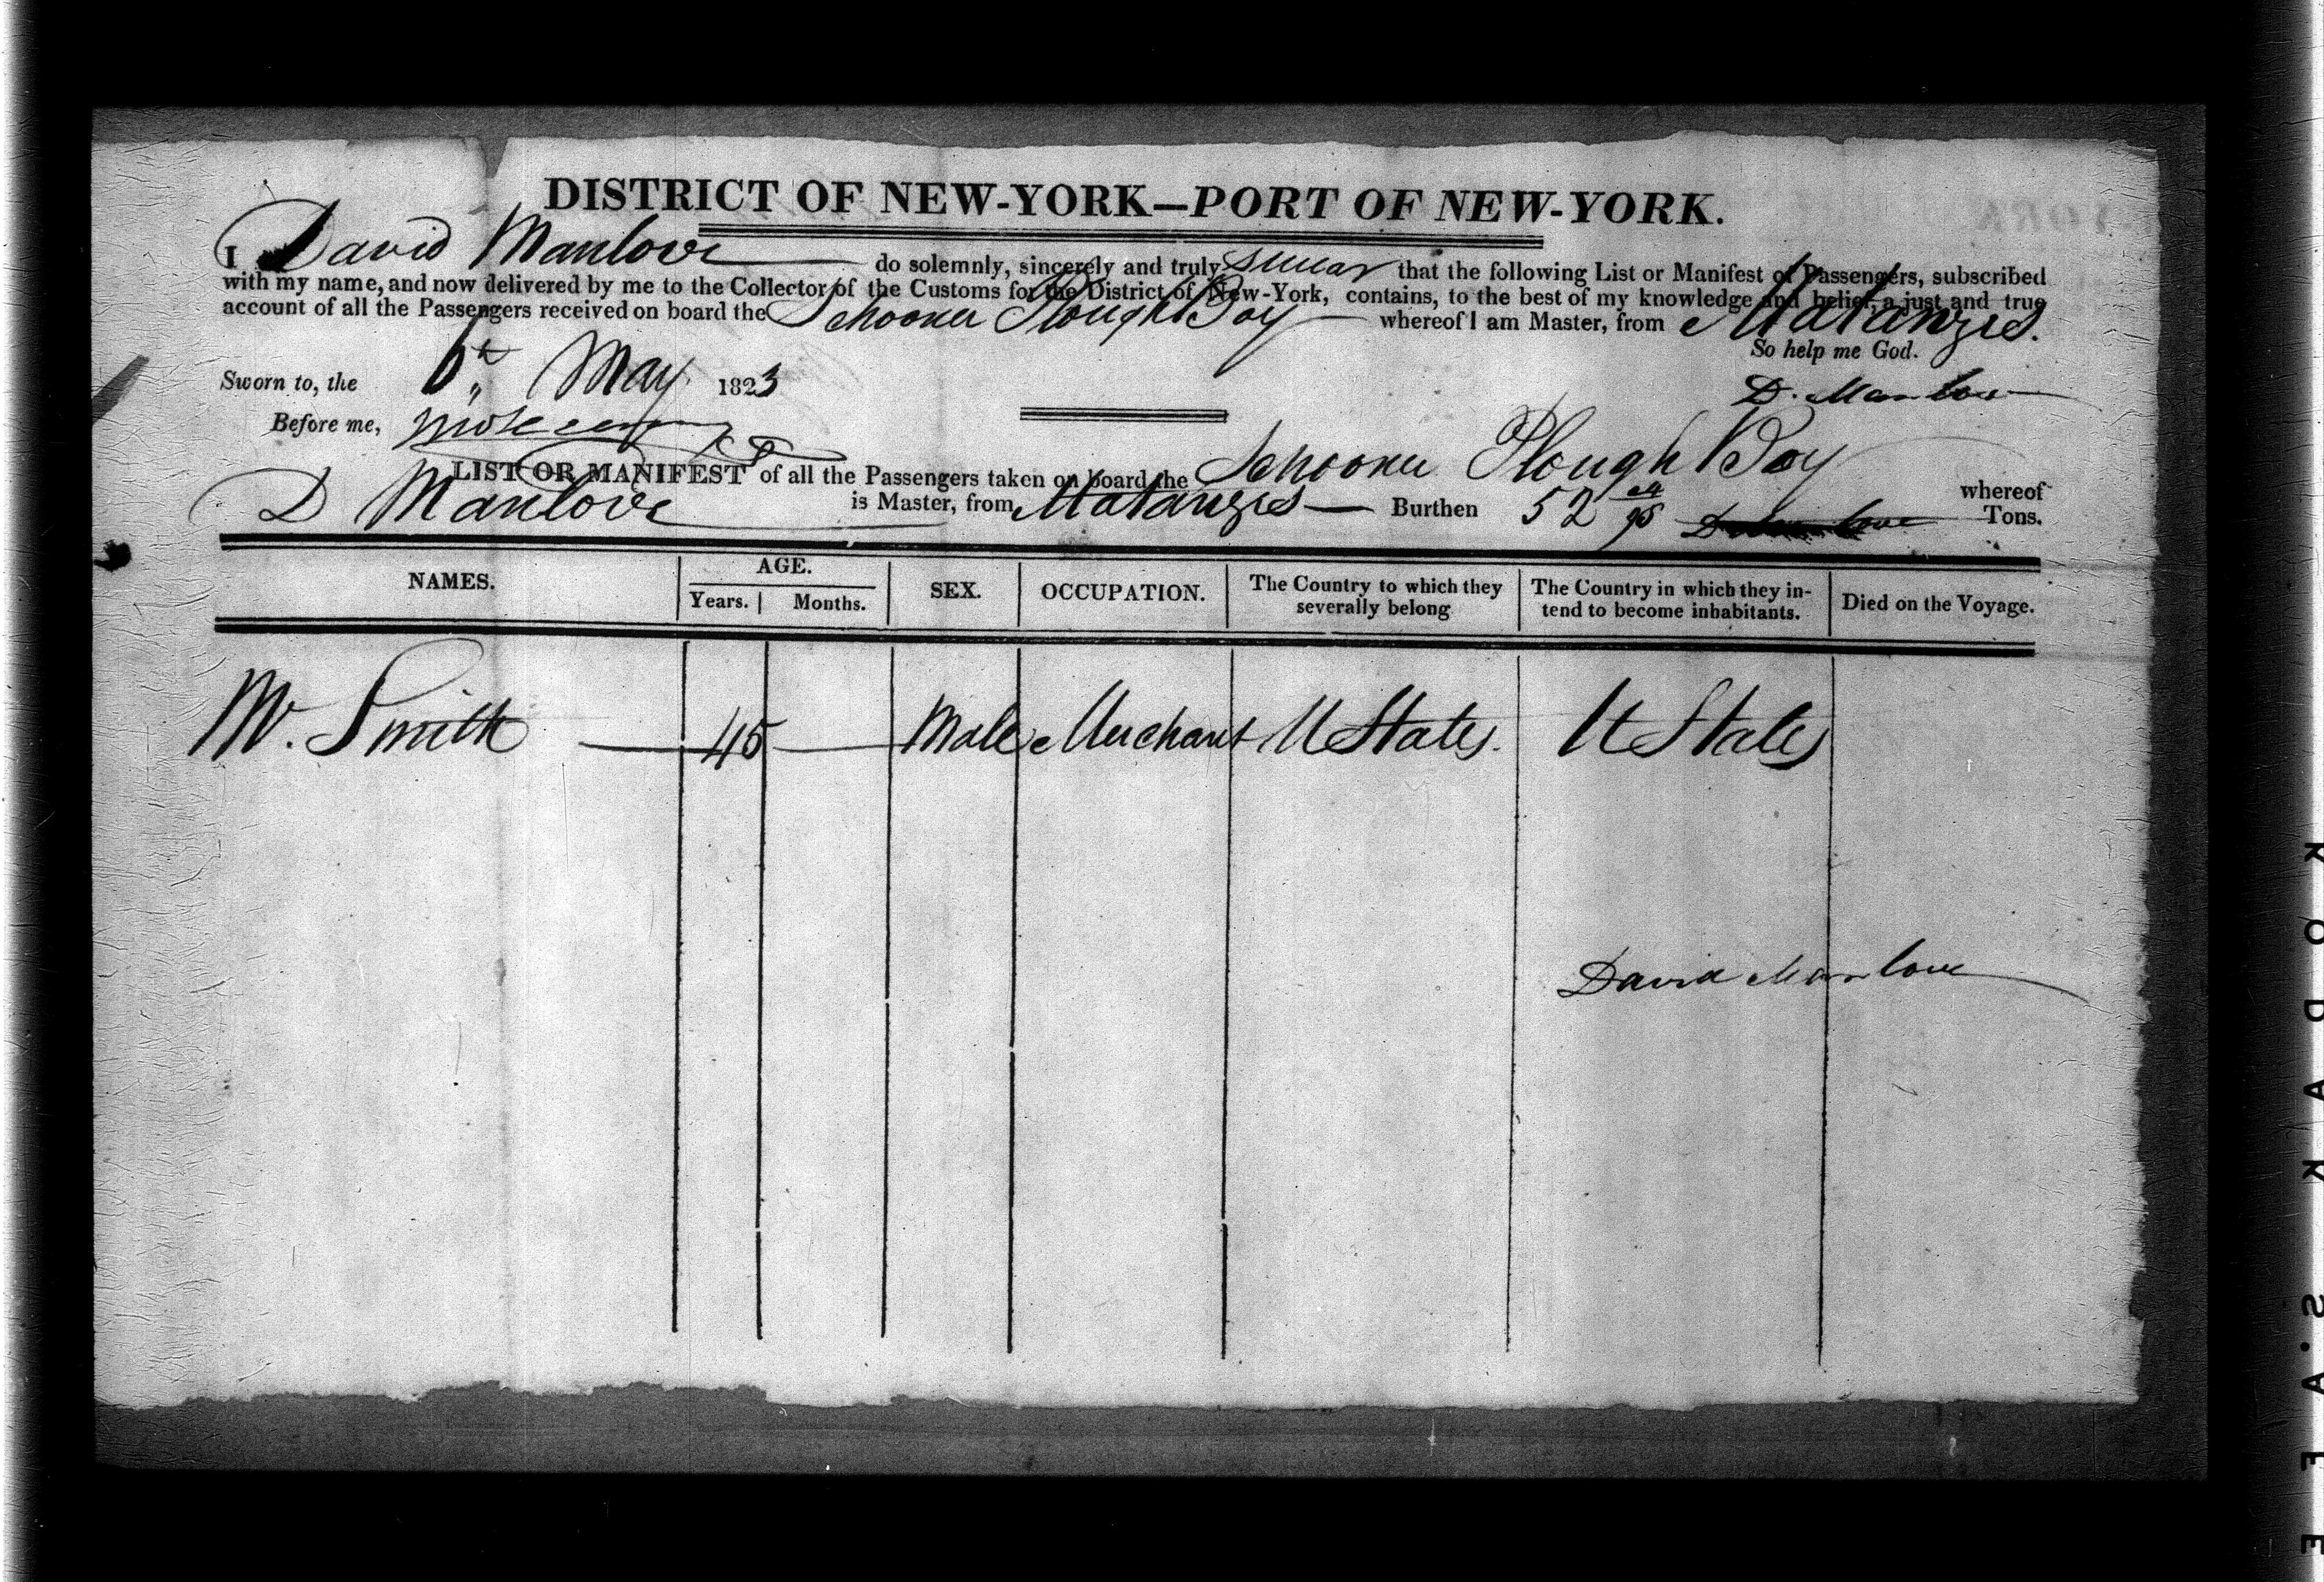 DISTRICT OF NEW-YORK—PORT OF NEW-YORK.
I David Manlove do solemnly, sincerely and truly swear that the following List or Manifest of Passengers, subscribed
with my name, and now delivered by me to the Collector of the Customs for the District of New-York, contains, to the best of my knowledge and belief, a just and true
account of all the Passengers received on board the Schooner Plough Boy whereof I am Master, from Matanzes.
So help me God.
Sworn to, the 6th May 1823
D. Manlove
Before me,
LIST OR MANIFEST of all the Passengers taken on board the Schooner Plough Boy whereof
D Manlove is Master, from Matanzes Burthen 52 24/95 Tons.
NAMES. AGE. SEX. OCCUPATION. The Country to which they severally belong The Country in which they in-tend to become inhabitants. Died on the Voyage.
Years. Months.
Mr. Smith 45 Male Merchant U States. U States
David Manlove
KODAK S.A.F.E.